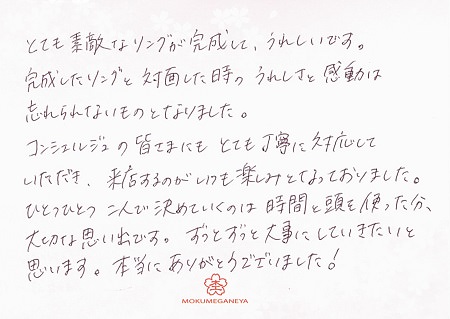 とても素敵なリングが完成して、うれしいです。
完成したリングと対面した時の うれしさと 感動は
忘れられないものとなりました。
コンシェルジュの皆さまにも とても丁寧に対応して
いただき、来店するのがいつも楽しみとなっておりました。
ひとつひとつ 二人で決めていくのは 時間と頭を使った分、
大切な思い出です。ずっとずっと大事にしていきたいと
思います。本当にありがとうございました!
MOKUMEGANEYA